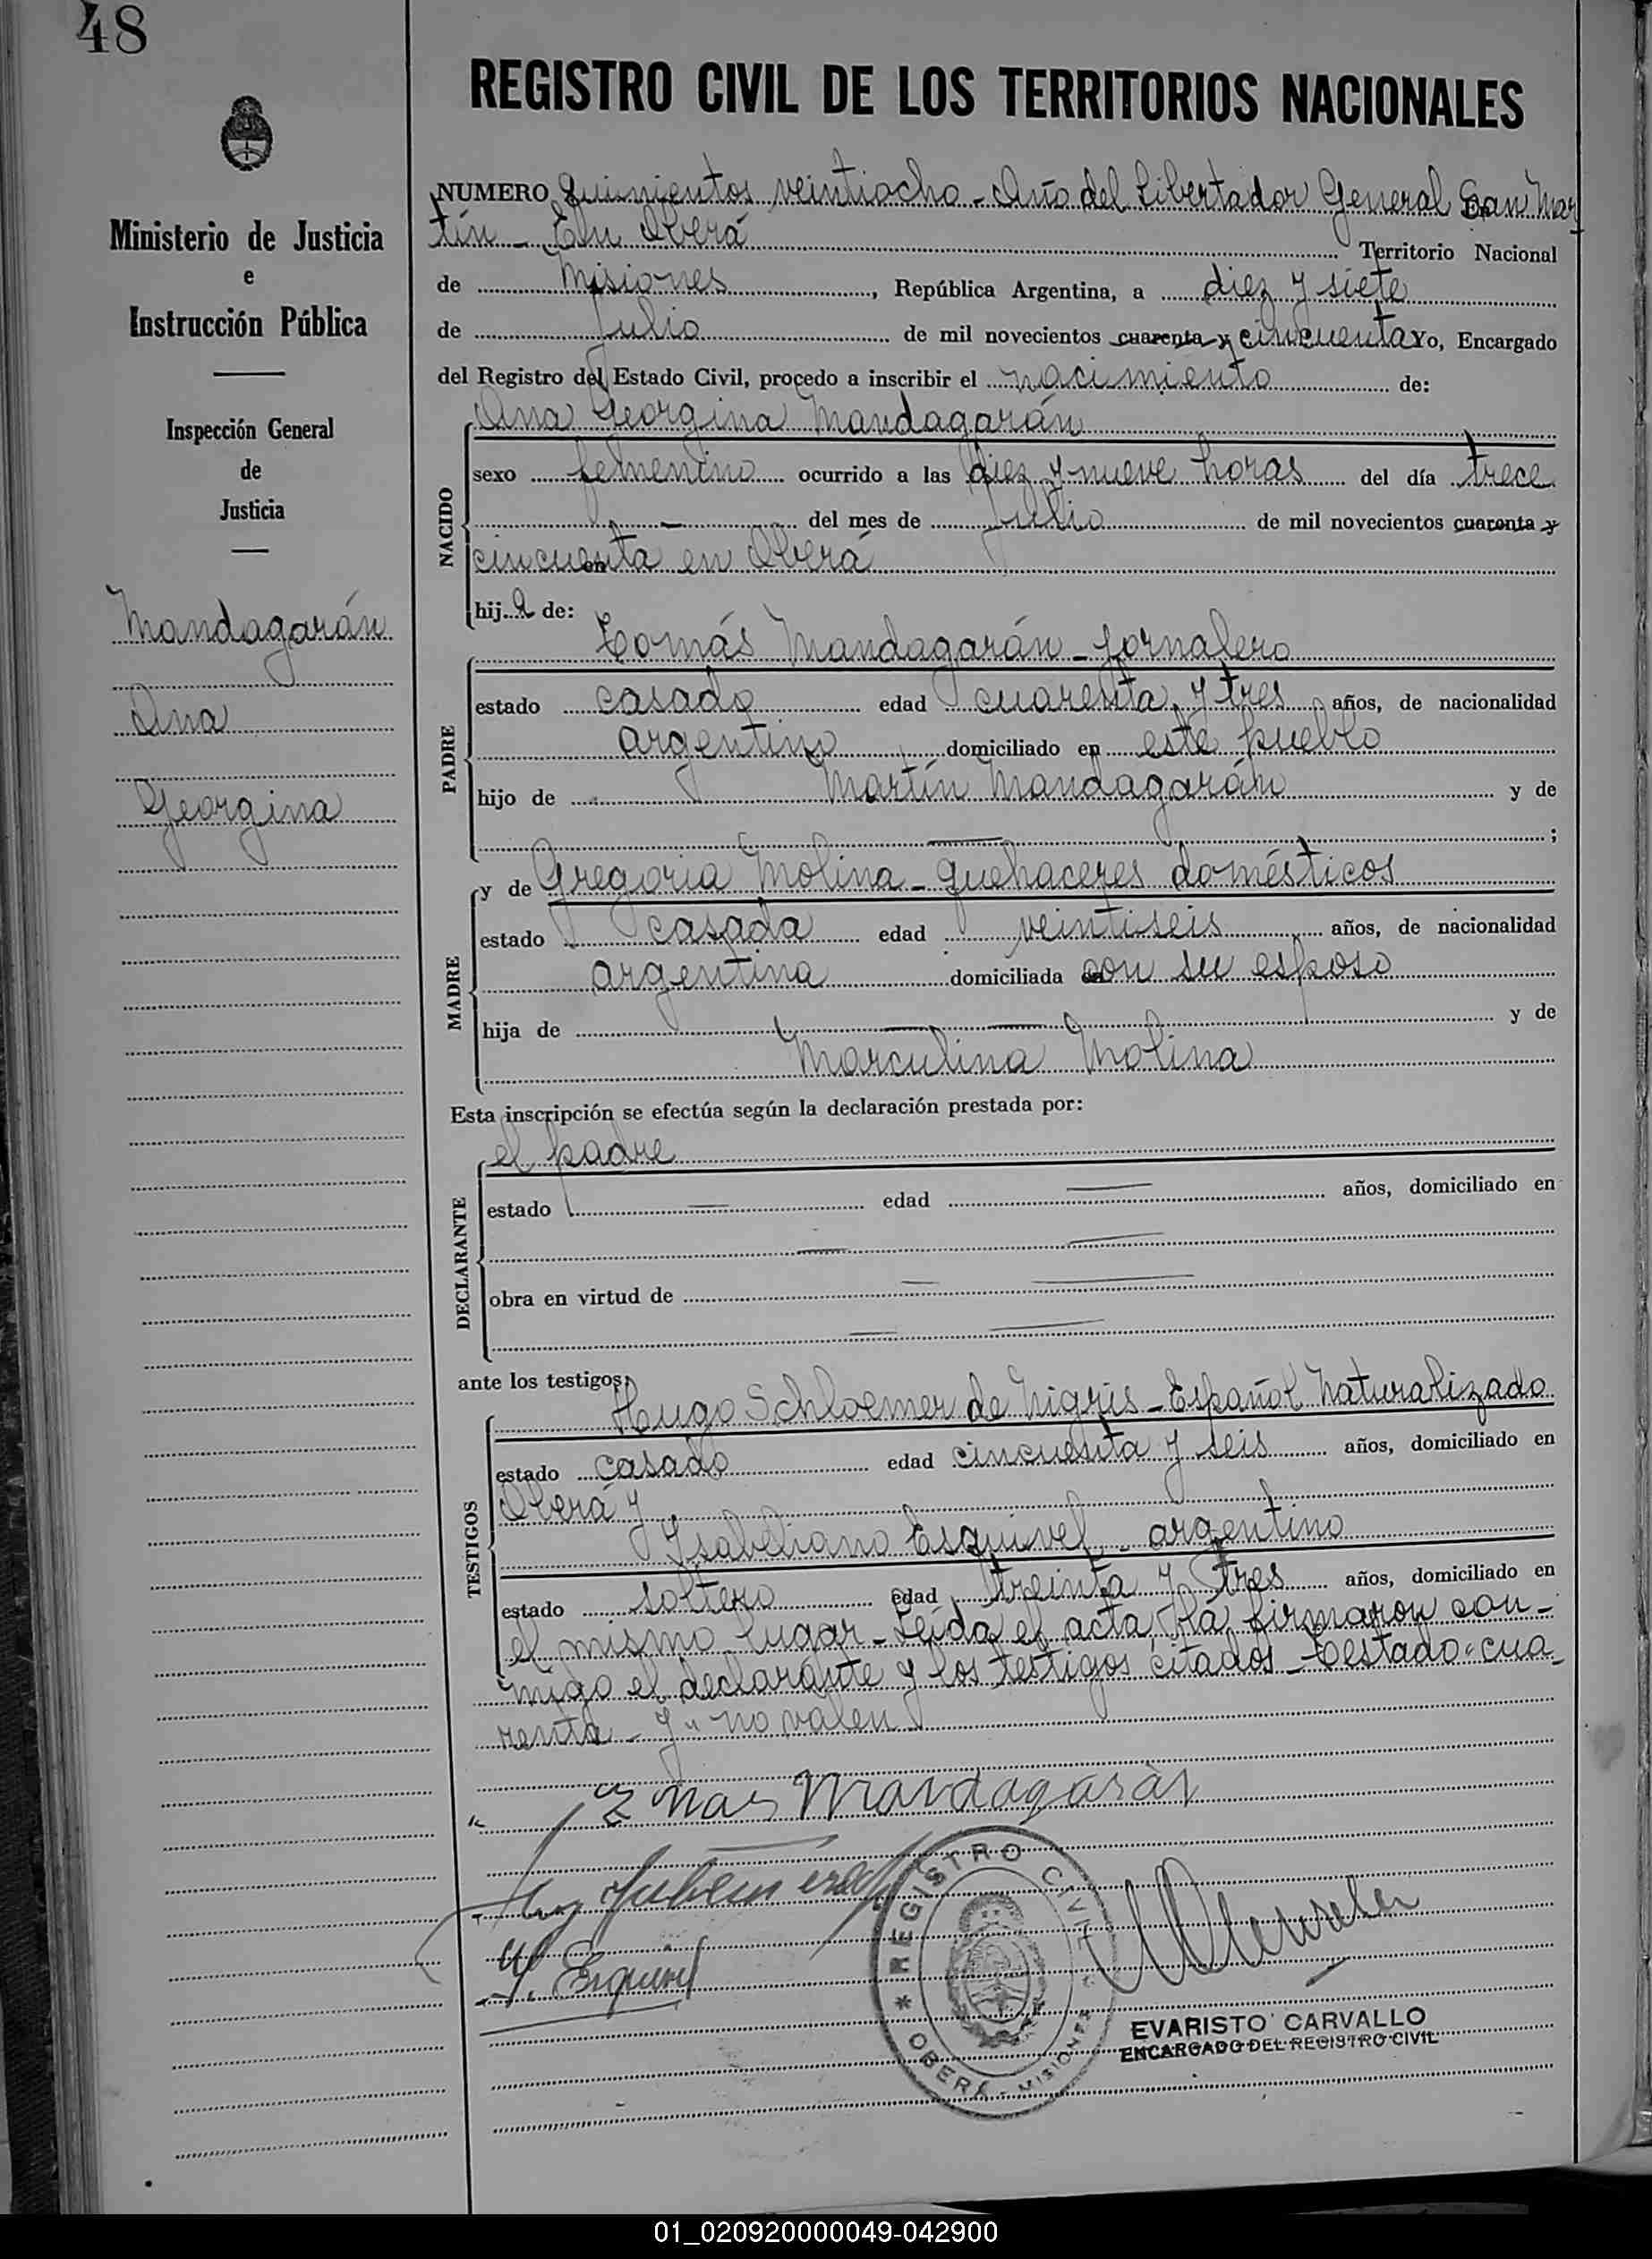 48
REGISTRO CIVIL DE LOS TERRITORIOS NACIONALES
Ministerio de Justicia
e
Instrucción Pública
Inspección General
de
Justicia
Mandagarán
Ana
Georgina
NUMERO Quinientos veintiocho - Año del Libertador General San Mar
tín - En Oberá Territorio Nacional
de Misiones, República Argentina, a diez y siete
de Julio de mil novecientos cuarenta y cincuenta Yo, Encargado
del Registro del Estado Civil, procedo a inscribir el nacimiento de:
Ana Georgina Mandagarán
NACIDO
sexo femenino ocurrido a las diez y nueve horas del día trece
del mes de Julio de mil novecientos cuarenta y
cincuenta en Oberá
hija de:
Tomás Mandagarán - Jornalero
PADRE
estado casado edad cuarenta y tres años, de nacionalidad
argentino domiciliado en este pueblo
hijo de Martín Mandagarán y de
;
y de Gregoria Molina - quehaceres domésticos
MADRE
estado casada edad veintiseis años, de nacionalidad
argentina domiciliada con su esposo
hija de y de
Marculina Molina
Esta inscripción se efectúa según la declaración prestada por:
el padre
DECLARANTE
estado edad años, domiciliado en
obra en virtud de
ante los testigos:
Hugo Schloemer de Nigris - Español Naturalizado
TESTIGOS
estado casado edad cincuenta y seis años, domiciliado en
Oberá y
Ysabeliano Esquivel - argentino
estado soltero edad treinta y tres años, domiciliado en
el mismo lugar - Leída el acta, la firmaron con-
migo el declarante y los testigos citados - Testado "cua
renta - y" no valen
Mandagaran
Y. Esquivel
REGISTRO CIVIL
OBERÁ - MISIONES
EVARISTO CARVALLO
ENCARGADO DEL REGISTRO CIVIL
01_020920000049-042900